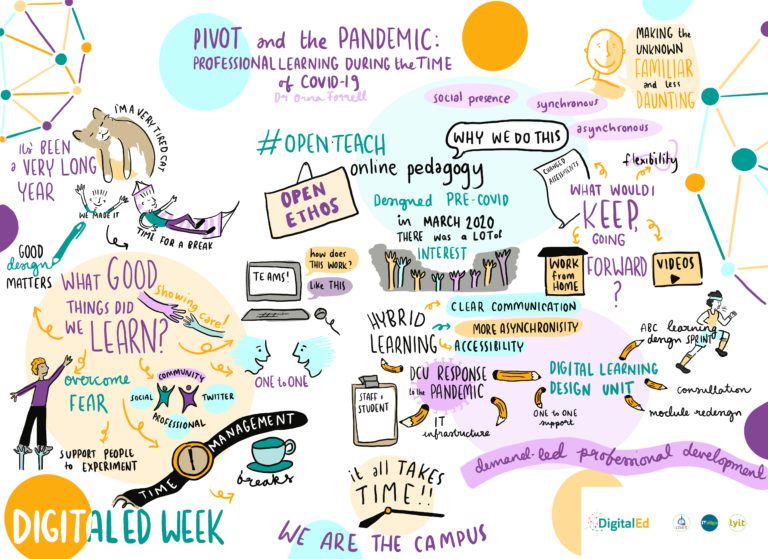 PIVOT and the PANDEMIC:
PROFESSIONAL LEARNING DURING the TIME
of COVID-19
Dr Orna Farrell
MAKING the
UNKNOWN
FAMILIAR
and less
DAUNTING
I'M A VERY TIRED CAT
it's BEEN
a VERY LONG
YEAR
WE MADE IT
TIME FOR A BREAK
social presence
synchronous
asynchronous
#OPENTEACH
WHY WE DO THIS
online pedagogy
OPEN
ETHOS
Designed PRE-COVID
in MARCH 2020
THERE WAS a LOT of
INTEREST
CHANGED
ASSESSMENTS
flexibility
WHAT WOULD I
KEEP,
GOING
FORWARD
?
WORK
from
HOME
VIDEOS
GOOD
design
MATTERS
WHAT GOOD
THINGS DID
WE LEARN?
Showing care!
TEAMS!
how does
THIS WORK?
Like THIS
ONE to ONE
overcome
FEAR
COMMUNITY
SOCIAL
TWITTER
PROFESSIONAL
SUPPORT PEOPLE
to EXPERIMENT
TIME MANAGEMENT
breaks
HYBRID
LEARNING
CLEAR COMMUNICATION
MORE ASYNCHRONISITY
ACCESSIBILITY
ABC learning
design SPRINT
DCU RESPONSE
to the PANDEMIC
STAFF &
STUDENT
IT
infrastructure
DIGITAL LEARNING
DESIGN UNIT
ONE to ONE
support
consultation
module redesign
demand-led professional development
it all TAKES
TIME!!
DIGITALED WEEK
WE ARE the CAMPUS
DigitalEd
lyit